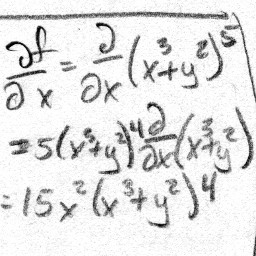 ∂f/∂x = ∂/∂x (x³+y²)⁵
= 5(x³+y²)⁴ ∂/∂x (x³+y²)
= 15x²(x³+y²)⁴